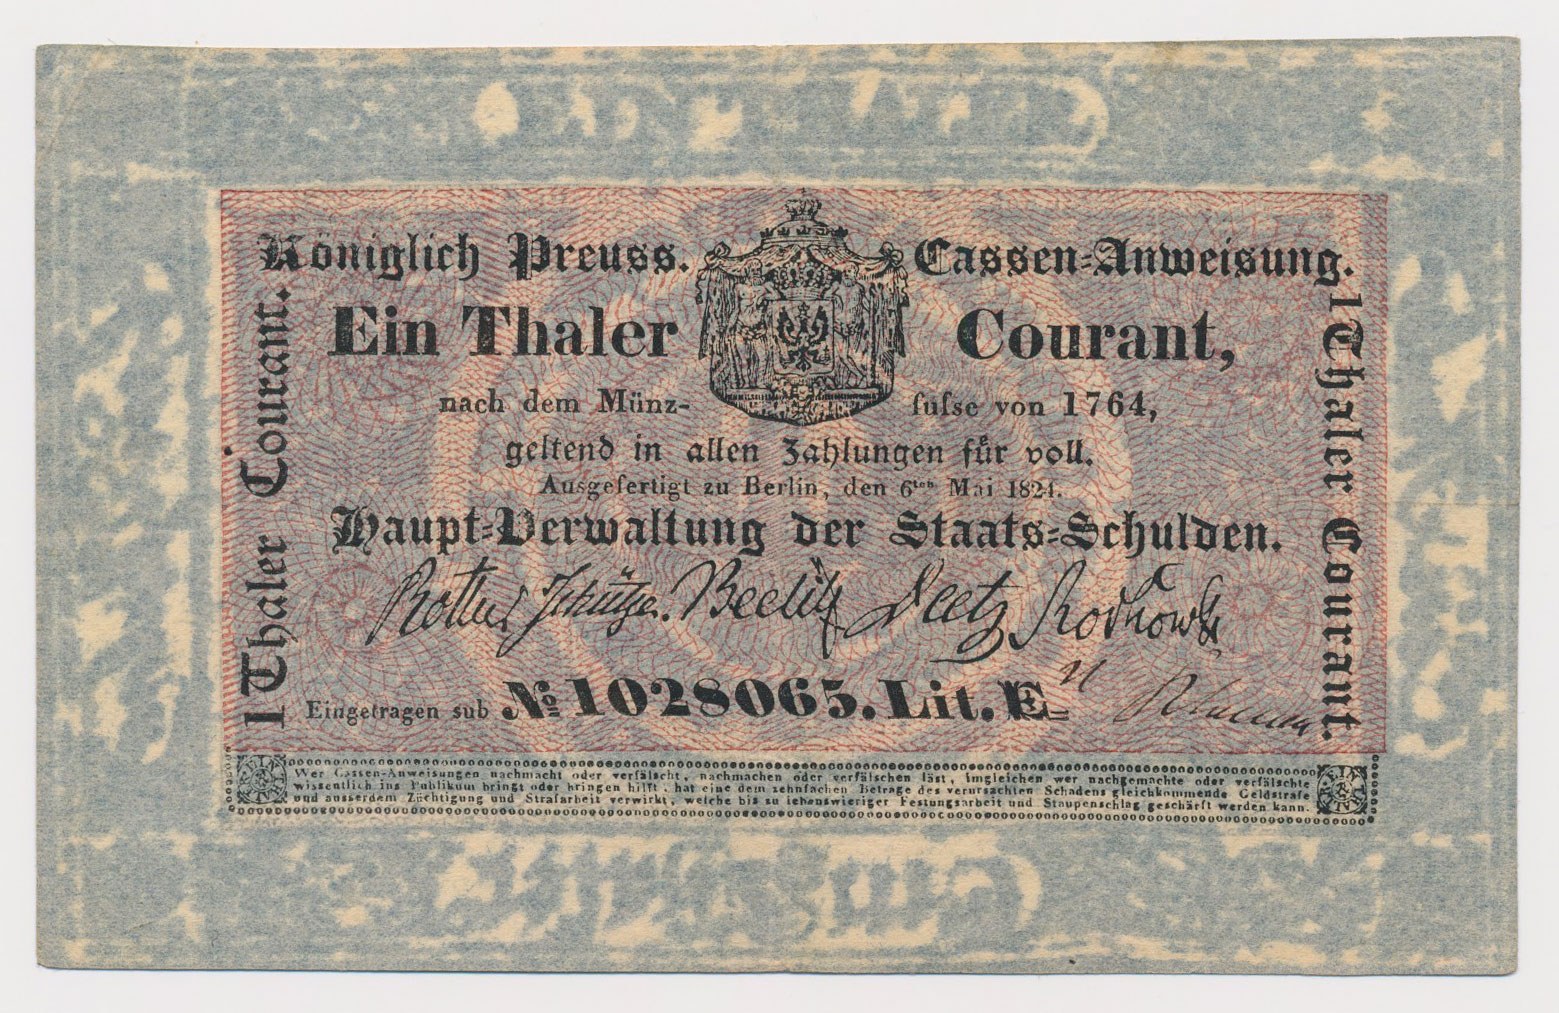 Königlich Preuss. Cassen=Anweisung.
Ein Thaler Courant,
nach dem Münz- fuſse von 1764,
geltend in allen Zahlungen für voll.
Ausgefertigt zu Berlin, den 6ten Mai 1824.
Haupt=Verwaltung der Staats=Schulden.
Rother Schütze. Beelitz Deetz Rochow
Eingetragen sub No. 1028065. Lit. E
1 Thaler Courant.
1 Thaler Courant.
Wer Cassen-Anweisungen nachmacht oder verfälscht, nachmachen oder verfälschen läst, imgleichen wer nachgemachte oder verfälschte
wissentlich ins Publikum bringt oder bringen hilft, hat eine dem zehnfachen Betrage des verursachten Schadens gleichkommende Geldstrafe
und ausserdem Züchtigung und Strafarbeit verwirkt, welche bis zu lebenswieriger Festungsarbeit und Staupenschlag geschärft werden kann.